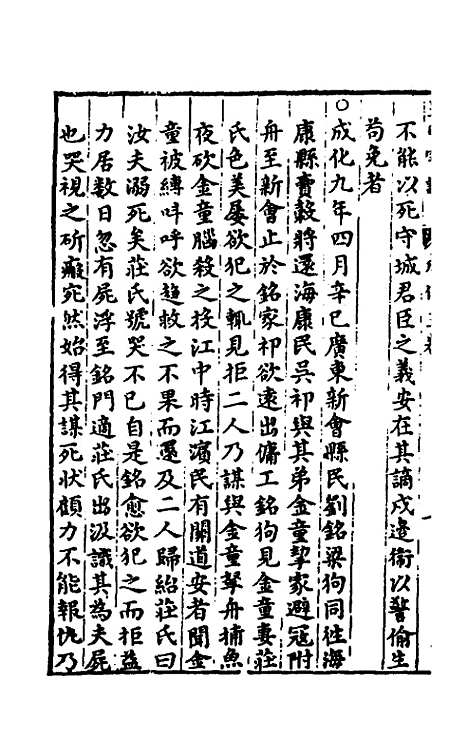 不能以死守城君臣之義安在其謫戍邊衛以警偷生
苟免者
○成化九年四月辛巳廣東新會縣民劉銘梁狗同徃海
康縣賣穀將還海康民吳祁與其弟金童挈家避冦附
舟至新會止於銘家祁欲遠出傭工銘狗見金童妻莊
氏色美屡欲犯之輒見拒二人乃謀與金童拏舟捕魚
夜砍金童腦殺之投江中時江濱民有關道安者聞金
童被縛呌呼欲趋救之不果而還及二人歸紿莊氏曰
汝夫溺死矣莊氏號哭不已自是銘愈欲犯之而拒益
力居数日忽有屍浮至銘門適莊氏出汲識其為夫屍
也哭視之斫瘢宛然始得其謀死状顧力不能報仇乃